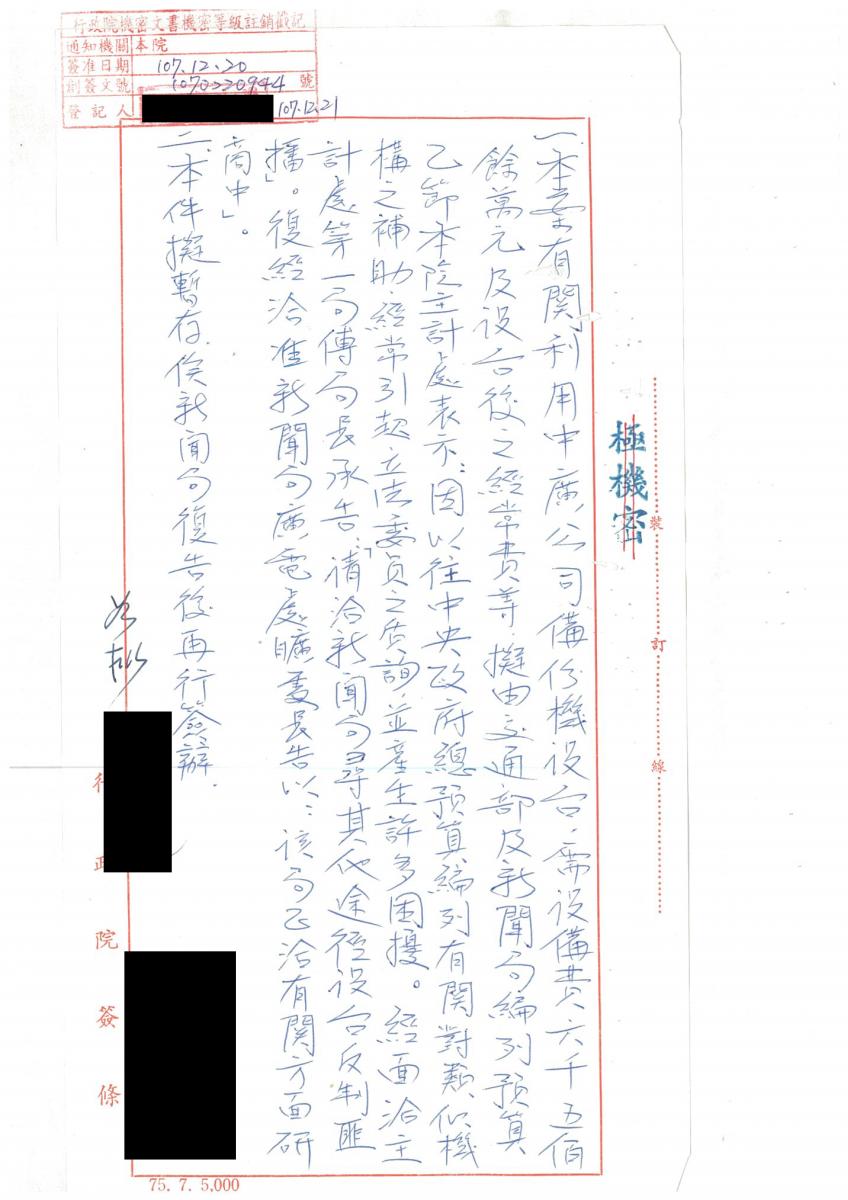 行政院機密文書機密等級註銷戳記
通知機關 本院
簽准日期 107.12.20
創簽文號 1070220944 號
登記人 107.12.21
極機密
裝 訂 線
一、本案有關利用中廣公司備份機設台,需設備費六千五佰
餘萬元及設台後之經常費等,擬由交通部及新聞局編列預算
乙節本院主計處表示:因以往中央政府總預算編列有關對類似機
構之補助,經常引起立法委員之質詢並產生許多困擾。經面洽主
計處第一局傅局長承告:「請洽新聞局尋其他途徑設台反制匪
播」。復經洽准新聞局廣電處曠委員告以:「該局正洽有關方面研
商中」。
二、本件擬暫存,俟新聞局復告後再行簽辦.
行政院簽條
75.7.5,000